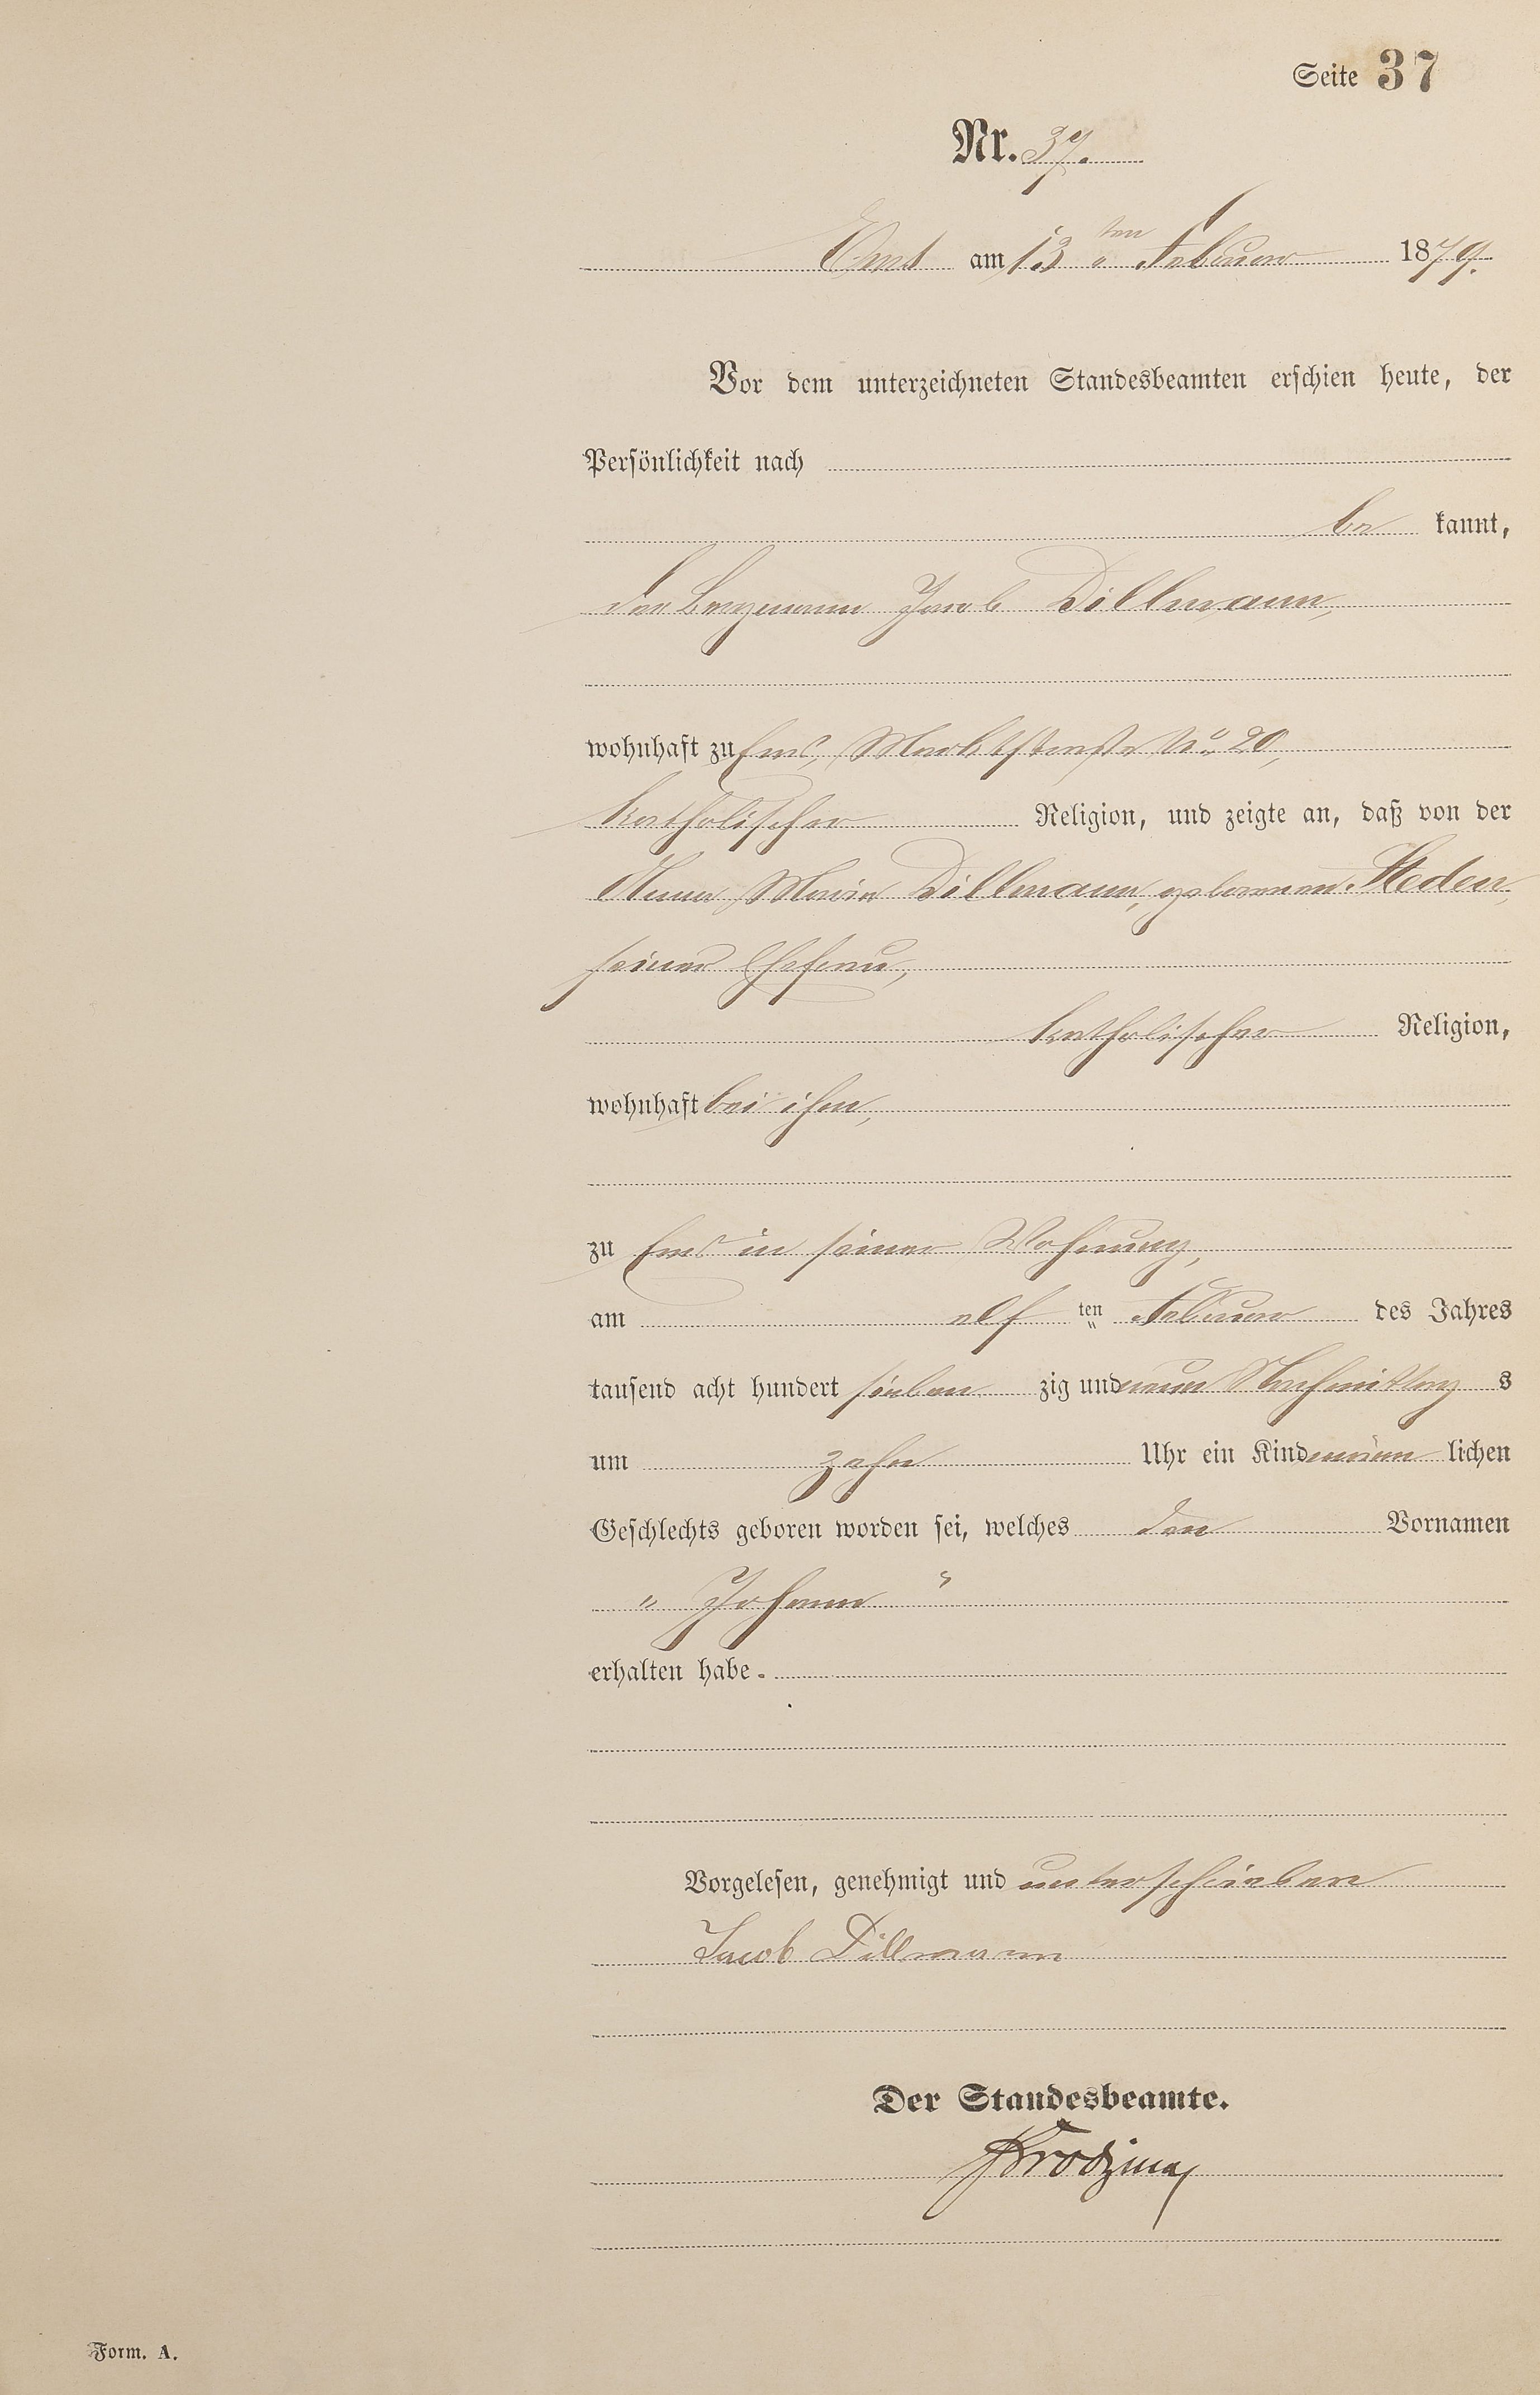 Seite 37
Nr. 37.
Ems am 13 ten Februar 1879.
Vor dem unterzeichneten Standesbeamten erschien heute, der
Persönlichkeit nach
be kannt,
der Bergmann Jacob Dillmann,
wohnhaft zu Ems, Marktstraße No. 20,
katholischer Religion, und zeigte an, daß von der
Anna Maria Dillmann, geborenen Steden,
seiner Ehefrau,
katholischer Religion,
wohnhaft bei ihm,
zu Ems in seiner Wohnung,
am elf ten Februar des Jahres
tausend acht hundert sieben zig und neun Nachmittag s
um zehn Uhr ein Kind männ lichen
Geschlechts geboren worden sei, welches den Vornamen
" Johann "
erhalten habe.
Vorgelesen, genehmigt und unterschrieben
Jacob Dillmann
Der Standesbeamte.
Form. A.